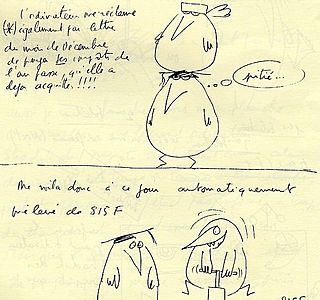 l'ordinateur me réclame
(*) également par lettre
du mois de Décembre
de payer les impôts de
l'an passé, qu'elle a
déjà acquittés !!!!
pitié...
Me voilà donc à ce jour automatiquement
prélevé de 815 F